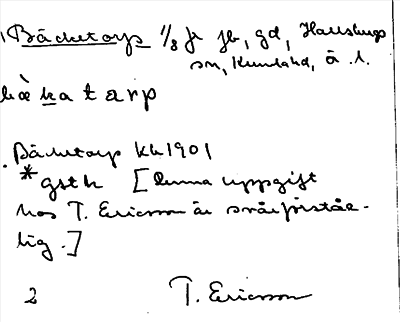 Bäcketorp 1/8 fr jb, gd, Hallsbergs
sn, Kumlahd, ä. l.
bὲkatarp
Bäcketorp kk 1901
*gstk [Denna uppgift
hos T. Ericsson är svårförståe-
lig.]
2 T. Ericsson